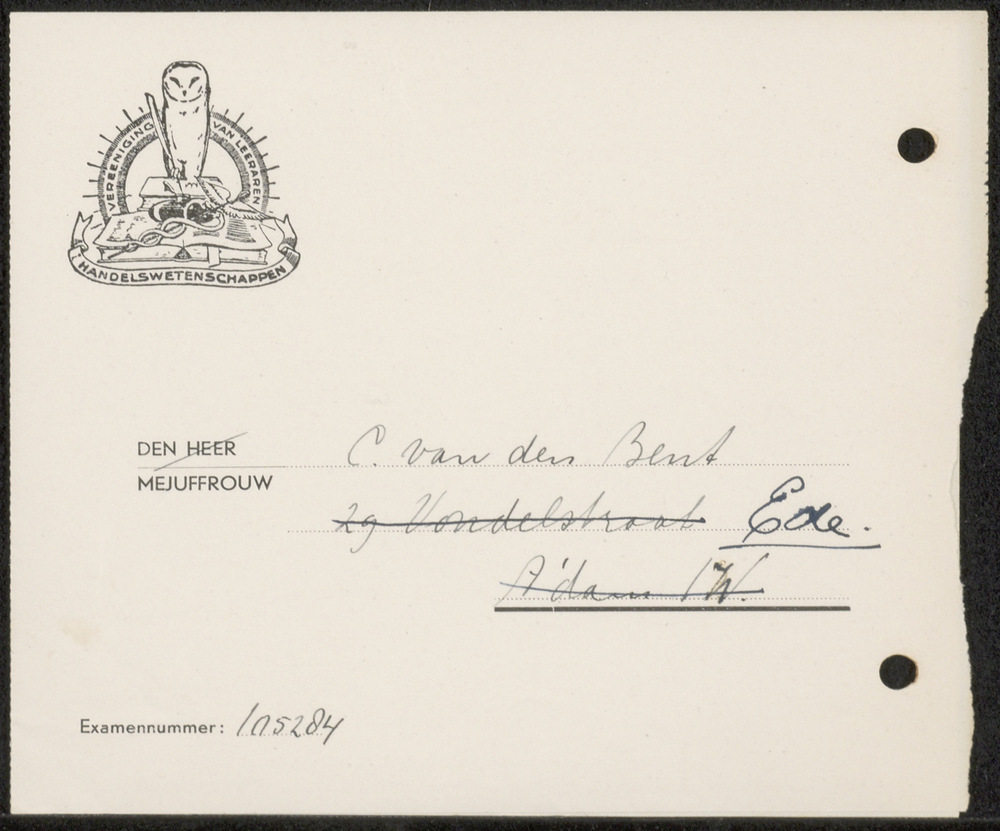 VEREENIGING VAN LEERAREN
HANDELSWETENSCHAPPEN
DEN HEER C. van den Bent
MEJUFFROUW
29 Vondelstraat Ede.
A'dam W.
Examennummer: